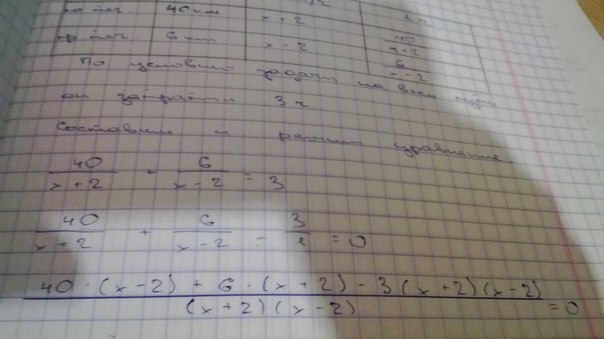 по теч. 40 км x + 2 40/(x+2)
пр. теч. 6 км x - 2 6/(x-2)
По условию задачи на весь путь
он затратил 3 ч.
Составим и решим уравнение
40/(x+2) + 6/(x-2) = 3
40/(x+2) + 6/(x-2) - 3/1 = 0
(40·(x-2) + 6·(x+2) - 3(x+2)(x-2))/((x+2)(x-2)) = 0